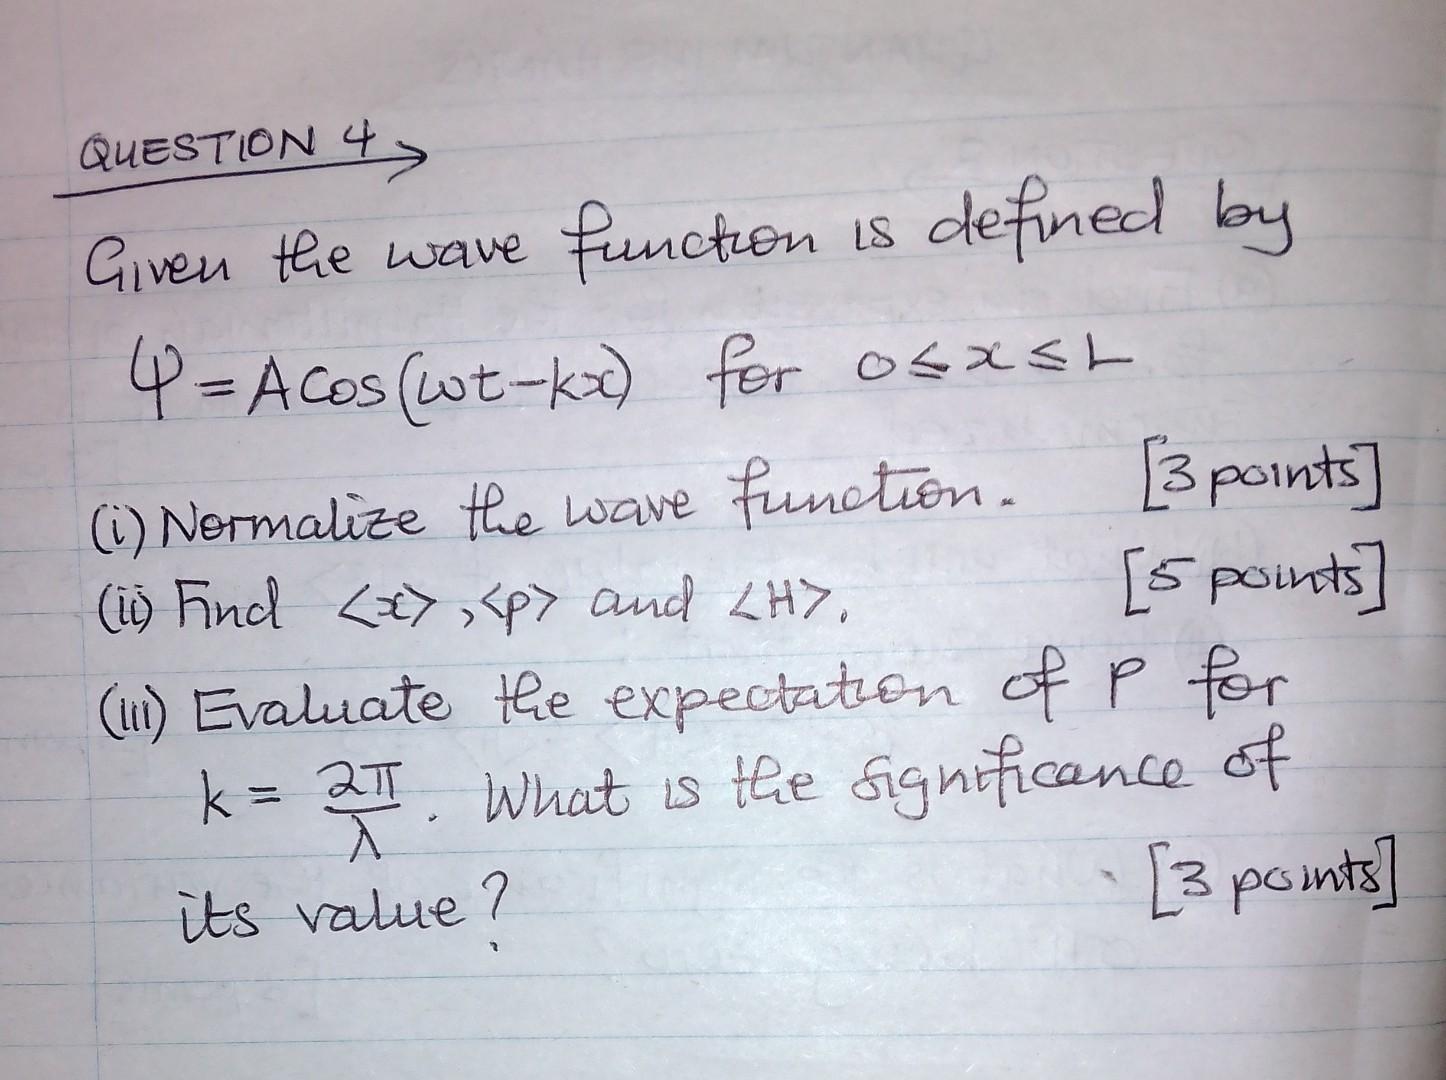 QUESTION 4
Given the wave function is defined by
Ψ = A Cos(ωt-kx) for 0≤x≤L
(i) Normalize the wave function. [3 points]
(ii) Find <x>, <p> and <H>. [5 points]
(iii) Evaluate the expectation of P for
k = 2π/λ. What is the significance of
its value? [3 points]